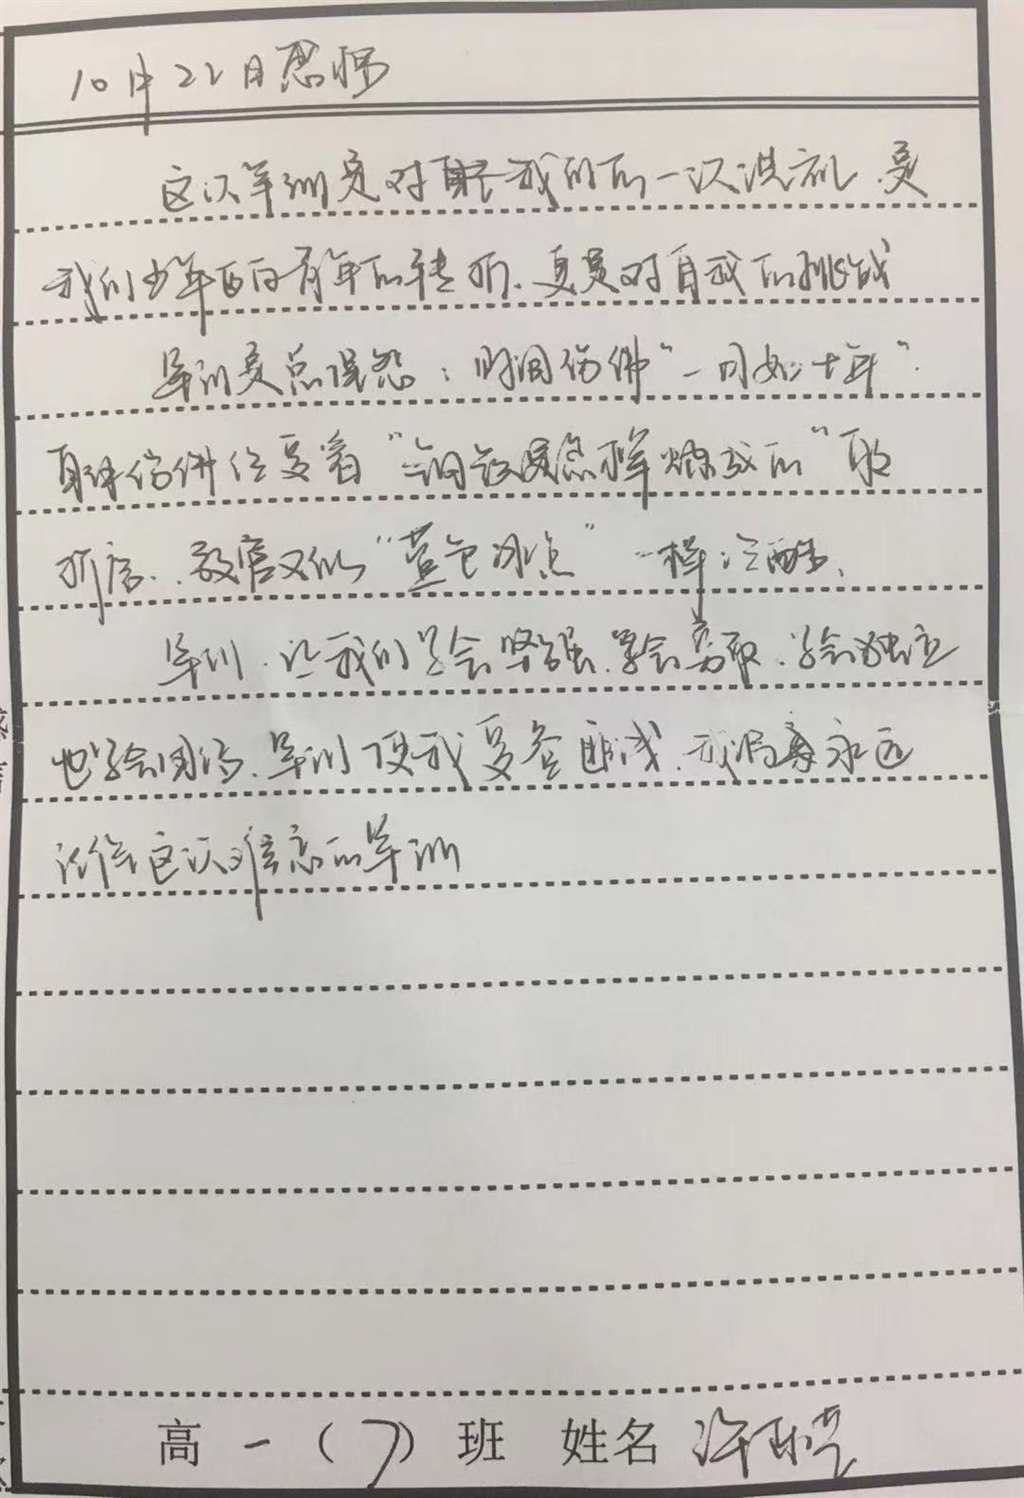 10月22日感悟
这次军训是对我们的一次洗礼.是
我们少年迈向青年的转折.更是对自我的挑战
军训是总很愁:时间仿佛"一日如十年".
身体仿佛经受着"钢铁是怎样炼成的"
折磨..教官又似"蓝色冰点"一样冷酷、
军训.让我们学会坚强.学会勇敢.学会独立
也学会团结.军训使我受益匪浅.我将永远
记住这次难忘的军训
高一(7)班 姓名 许